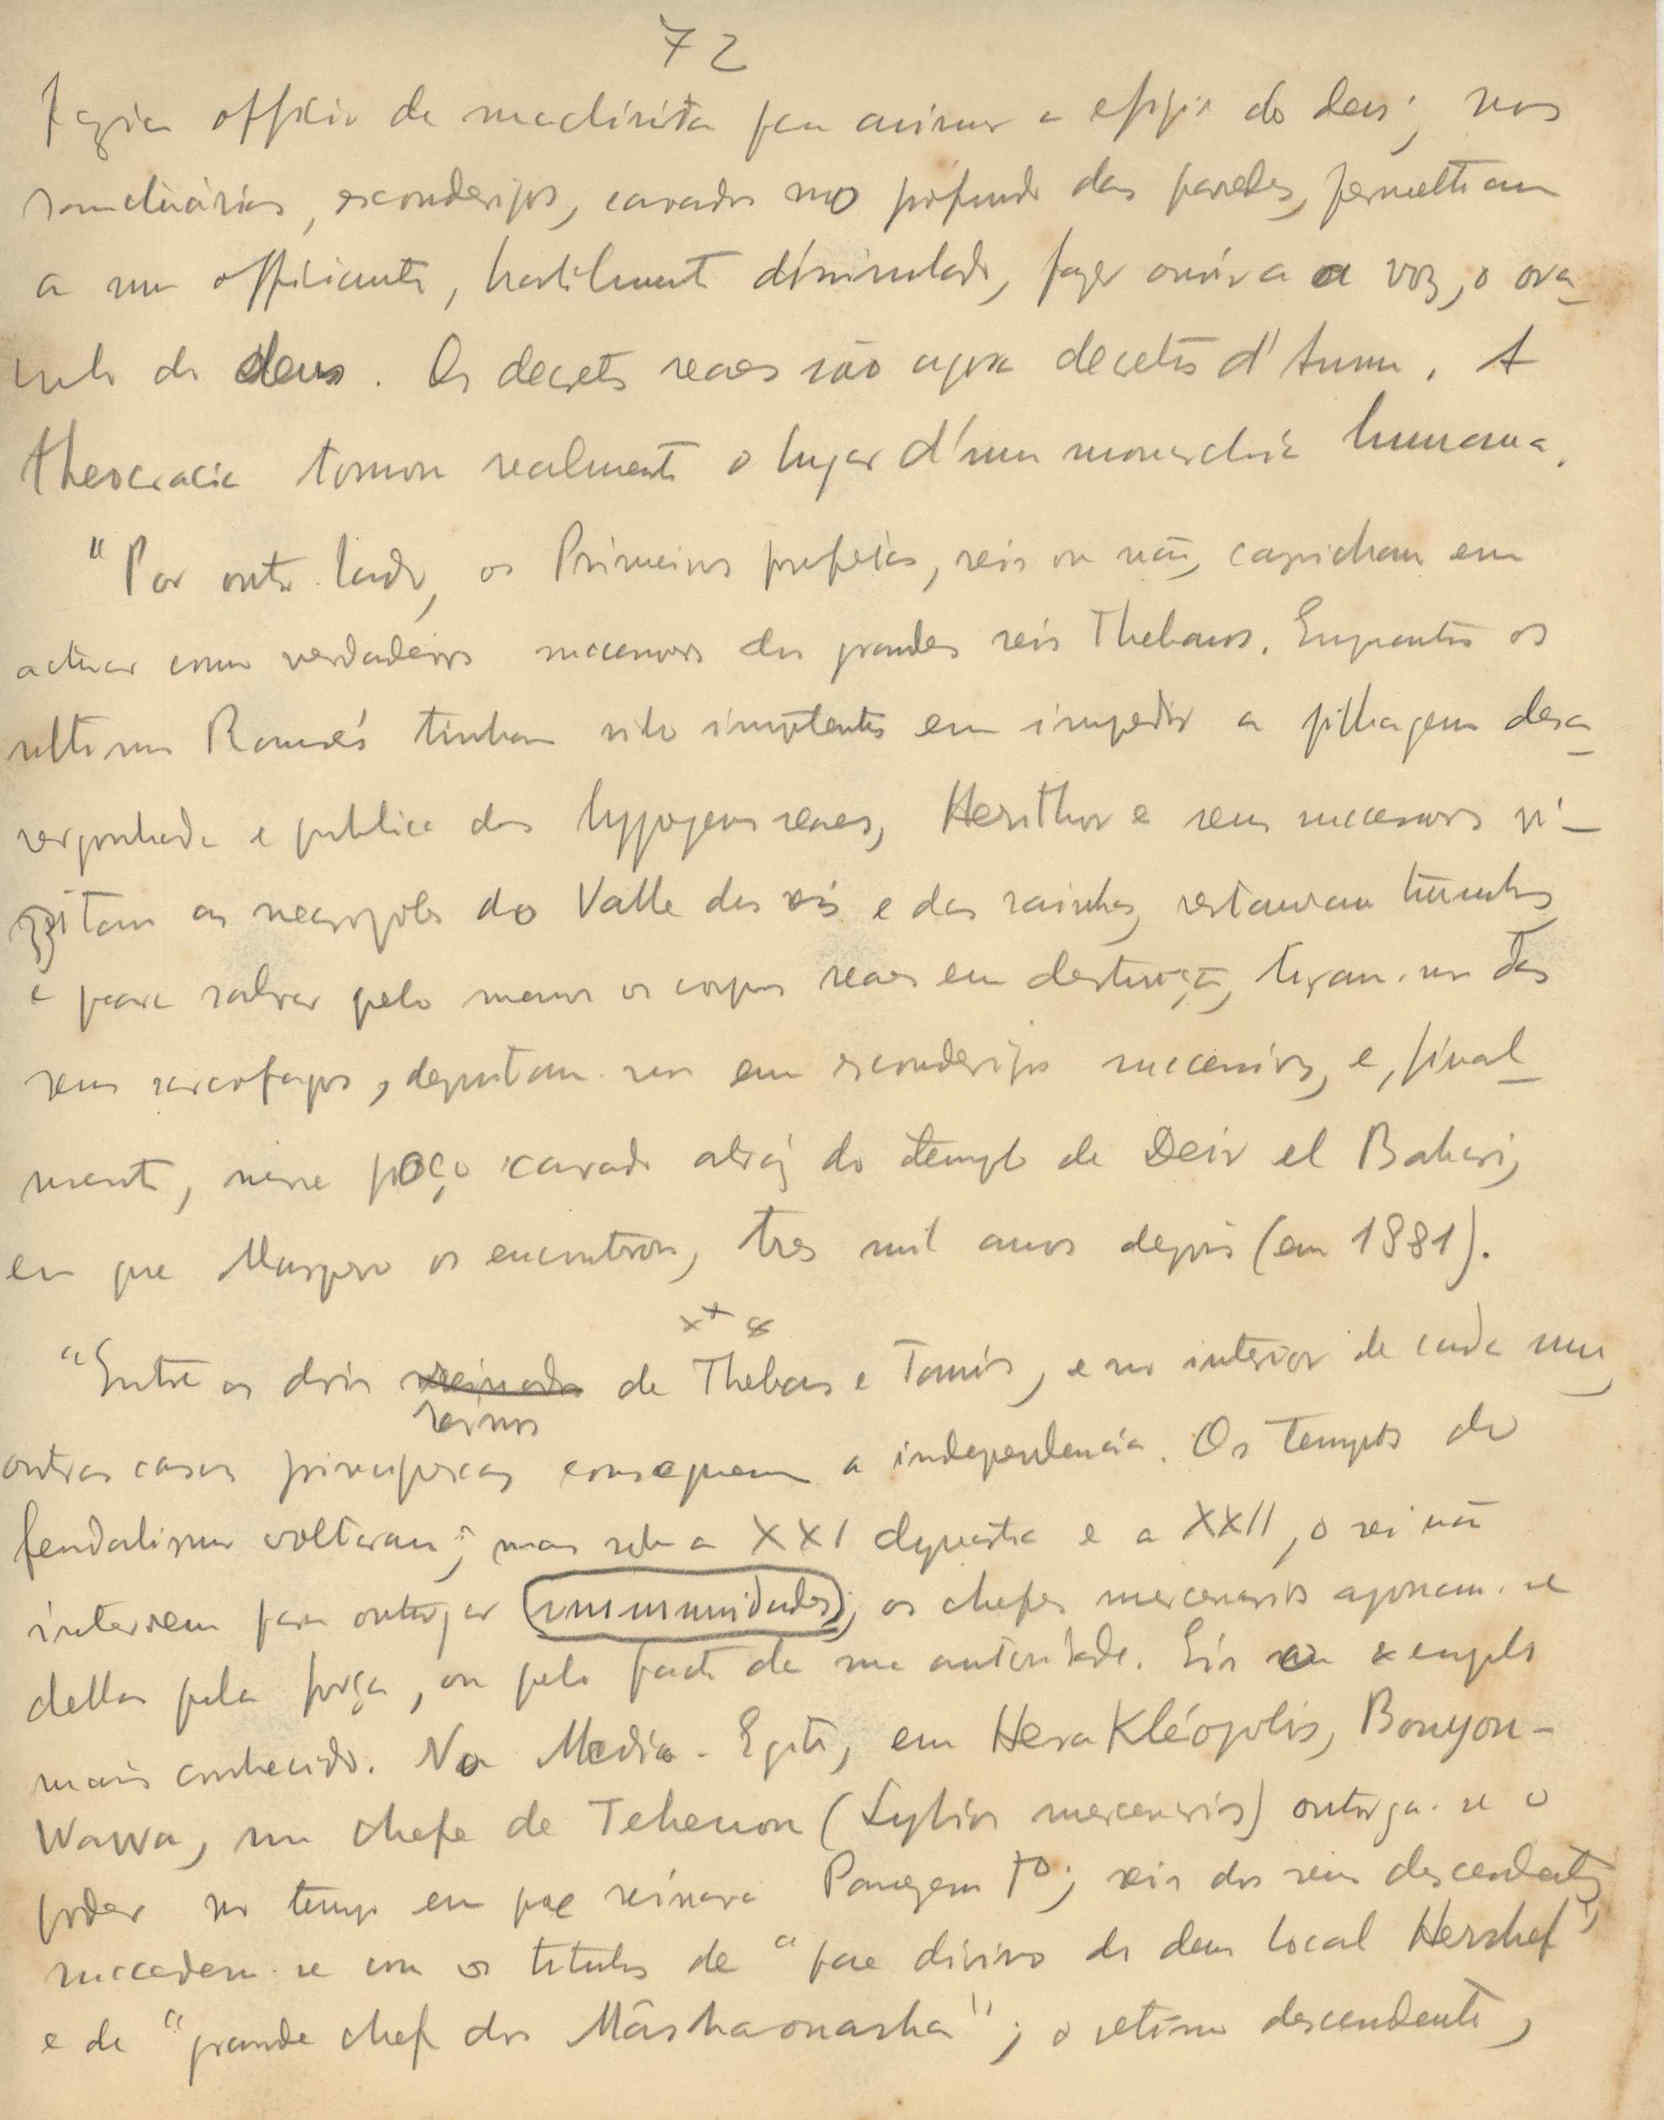 72
fazia officio de machinista para animar a efigie do deus; nos
sanctuarios, esconderijos, cavados no profundo das paredes, permettiam
a um officiante, habilmente dissimulado, fazer ouvir a voz, o ora-
culo do deus. Os decretos reaes são agora decretos d'Amon. A
theocracia tomou realmente o lugar d'uma monarchia humana.
"Por outro lado, os Primeiros prophetas, reis ou não, capricham em
actuar como verdadeiros successores dos grandes reis Thebanos. Emquanto os
ultimos Ramsés tinham sido impotentes em impedir a pilhagem desa-
vergonhada e publica dos hypogeus reaes, Herithor e seus successores vi-
sitam as necropoles do Valle dos reis e das rainhas, restauram tumulos
e para salvar pelo menos os corpos reaes em destruição, tiram-nos dos
seus sarcofagos, depositam-nos em esconderijos successivos, e, final-
mente, nesse poço cavado atraz do templo de Deir el Bahari,
em que Maspero os encontrou, tres mil anos depois (em 1881).
"Entre os dois reinados de Thebas e Tanis, e no interior de cada um,
reinos
outras casas principescas conseguem a independencia. Os tempos do
feudalismo voltaram; mas sob a XXI dynastia e a XXII, o rei não
intervem para outorgar immunidades; os chefes mercenarios apossam-se
dellas pela força, ou pelo facto de sua autoridade. Eis um exemplo
mais conhecido. No Medio-Egito, em HeraKléopolis, Bouyou-
Wawa, um chefe de Tehenou (Lybios mercenarios) outorga-se o
poder no tempo em que reinava Pauzem Iº; seis dos seus descendentes
succedem-se com os titulos de "pae divino do deus local Hershef",
e de "grande chefe dos Mâshaouasha"; o setimo descendente,